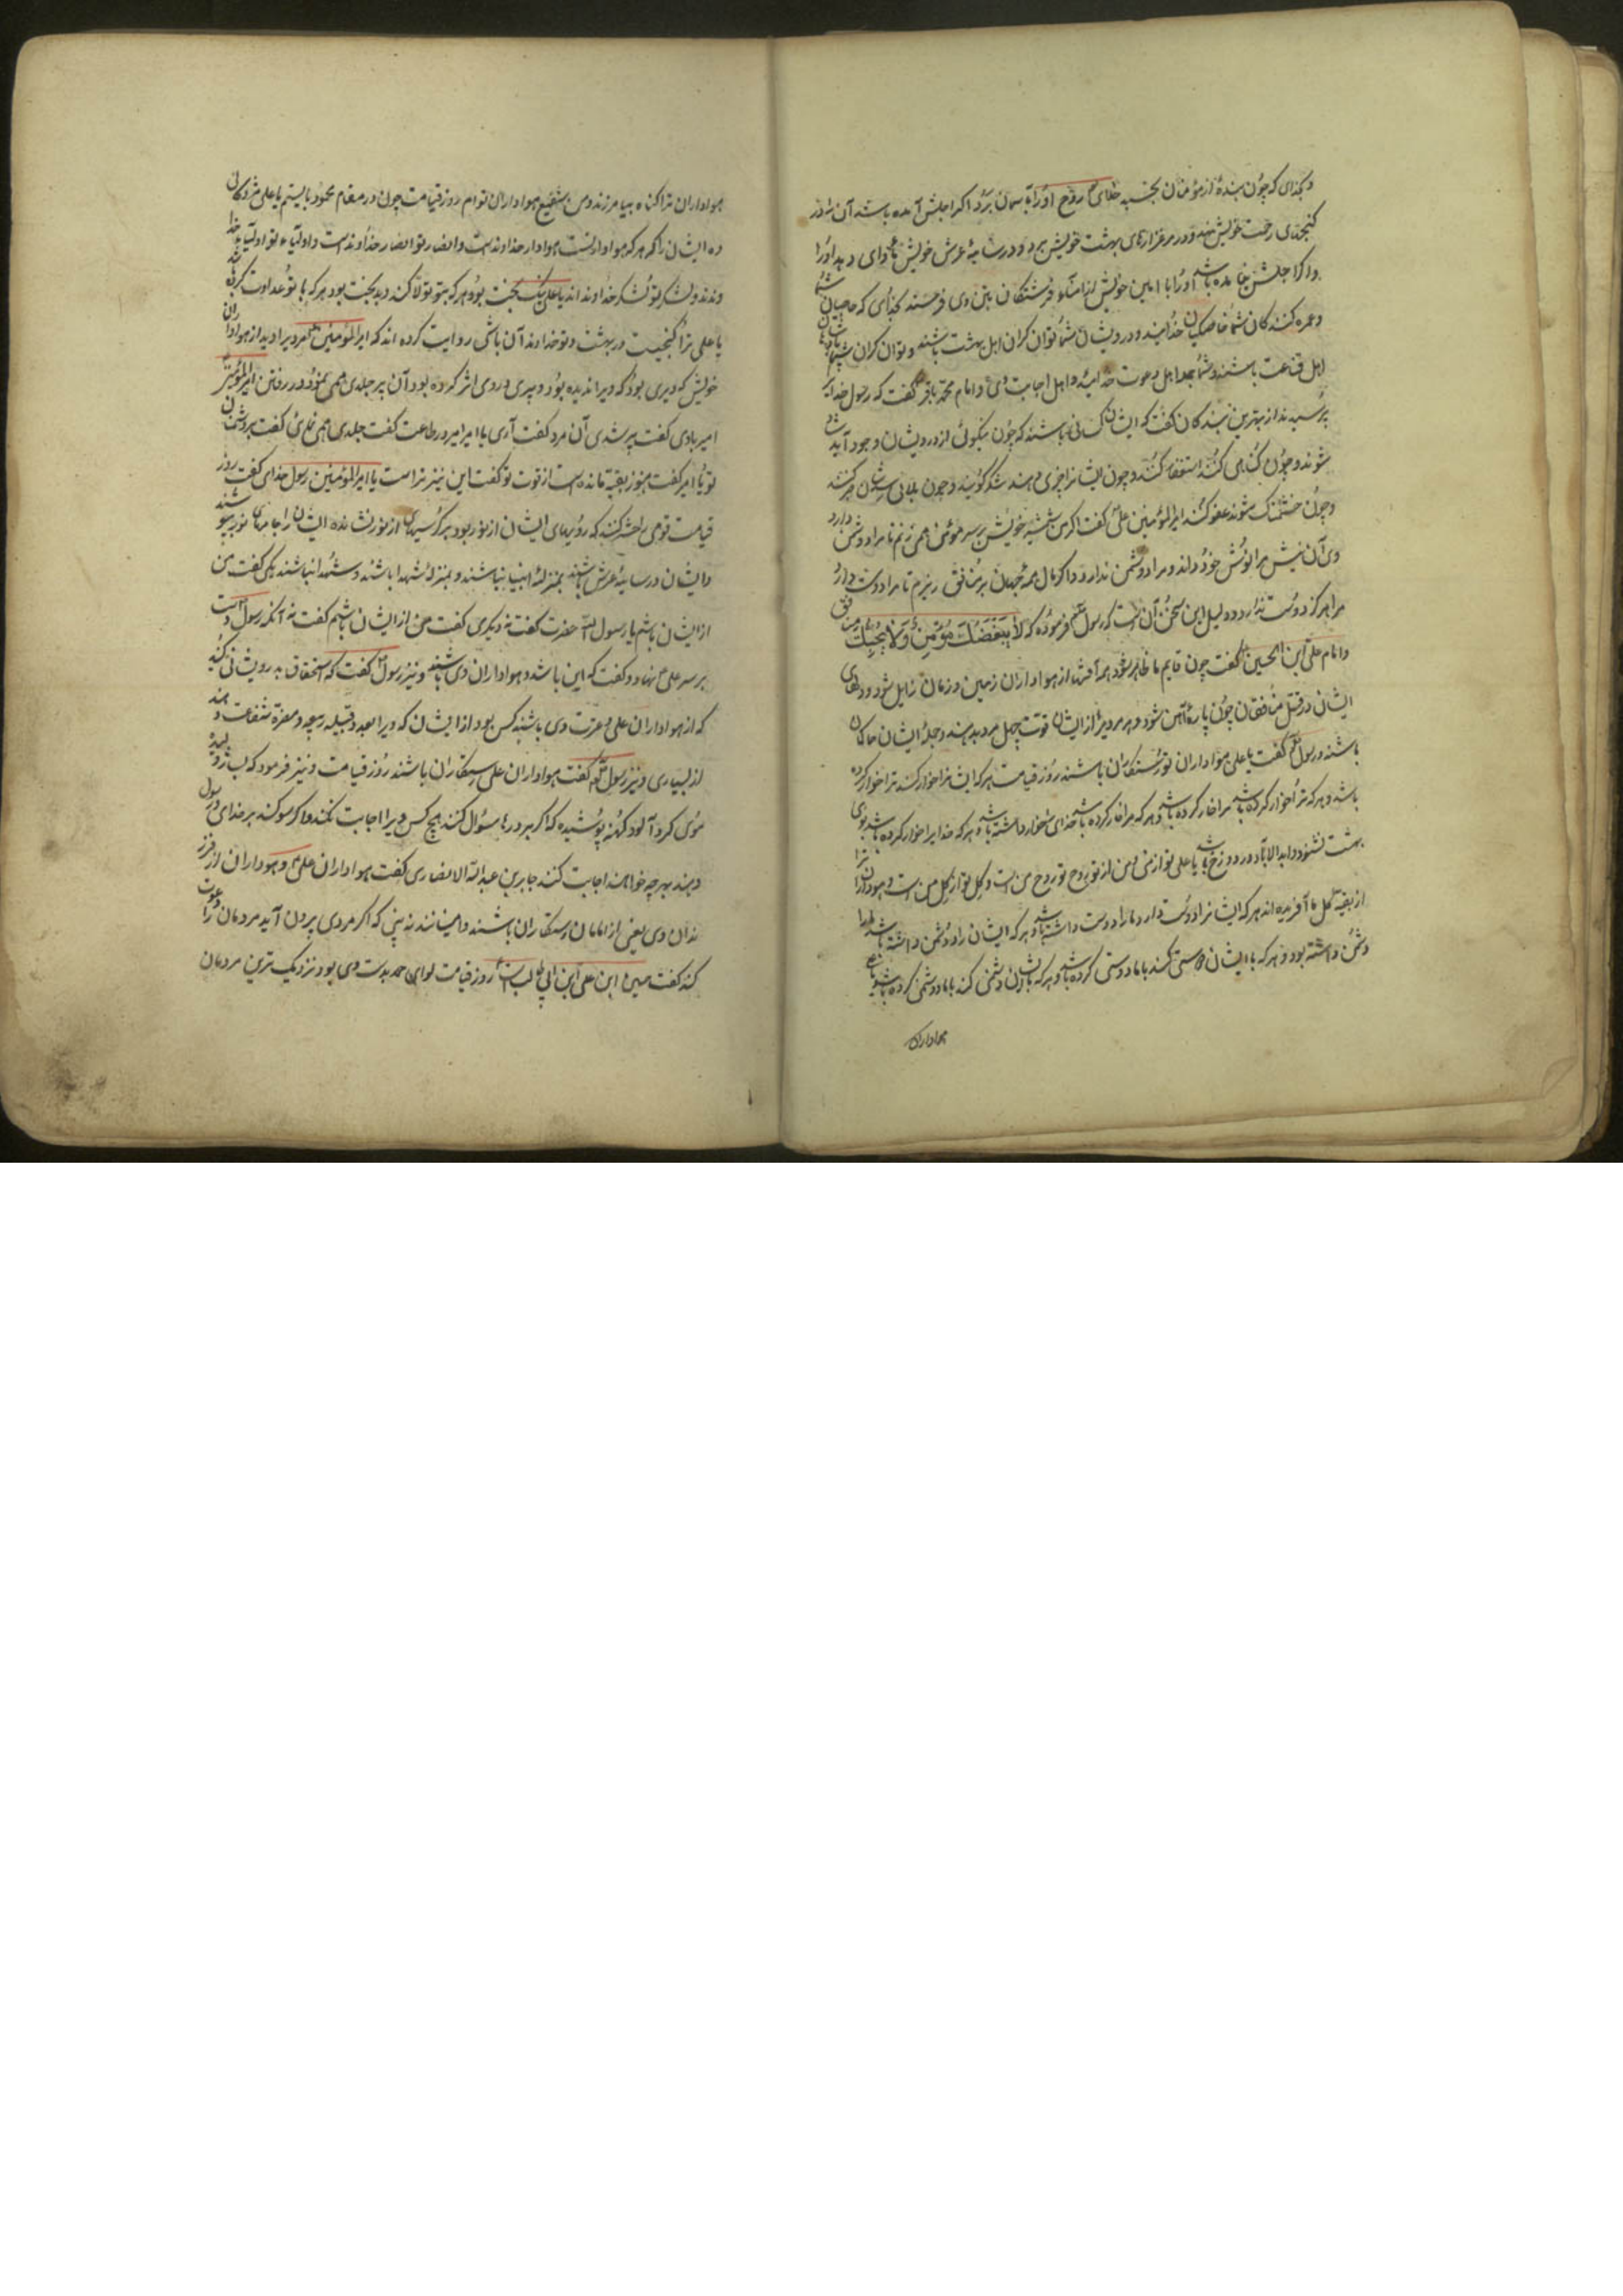 و بخدای که چون بندهٔ از مؤمنان بخسبد خدای روح او را بآسمان برد اگر اجلش آمده باشد آن در
کنجهای رحمت خویش نهد و در مرغزارهای بهشت خویش برد و در سایهٔ عرش خویش ماوای دهد او را
و اگر اجلش نیامده باشد او را با امین خویش از فرشتگان بتن وی فرستد بخدای که حاجیان شما
و عمره کنندکان شما خاصکیان خدایند و درویشان شما توانکران اهل بهشت باشند و توانکران شما
اهل قناعت باشند و شما جمله اهل دعوت خدائید و اهل اجابت وی و امام محمد باقر گفت که رسول خدایرا
پرسیدند از بهترین بندکان گفت که ایشان کسانی باشند که چون نیکوئی از ایشان در وجود آید شاد
شوند و چون کناهی کنند استغفار کنند و چون ایشانرا چیزی دهند شکر گویند و چون بلائی رسد صبر کنند
و چون خشمناک شوند عفو کنند امیرالمؤمنین علی گفت اگر من بشمشیر خویش بر سر مؤمنی همی زنم تا مرا دشمن دارد
وی آن نیش مرا نوش خود داند و مرا دشمن ندارد و اگر مال همه جهان بر منافق ریزم تا مرا دوست دارد
مرا هرکز دوست ندارد و دلیل این سخن آن است که رسول فرموده که لا یبغضک مؤمن و لا یحبک منافق
و امام علی ابن الحسین گفت چون قایم ما ظاهر شود همه آفتها از هواداران زمین و زمان زایل شود و دلهای
ایشان در قتل منافقان چون پارهٔ آهن شود و هر مردیرا از ایشان قوت چهل مرد بدهند و جملهٔ ایشان حاکمان
باشند و رسول گفت یا علی هواداران تو رستکاران باشند روز قیامت هرکه ایشانرا خوار کند ترا خوار کرده
باشد و هرکه ترا خوار کرده باشد مرا خوار کرده باشد و هرکه مرا خوار کرده باشد خدای را خوار داشته باشد و هرکه خدایرا خوار کرده باشد بوی
بهشت نشنود و ابدالاباد در دوزخ باشد یا علی تو از منی و من از تو روح تو روح من است و گل تو از گل من است و هواداران ترا
از بقیه گل ما آفریده اند هرکه ایشانرا دوست دارد ما را دوست داشته باشد و هرکه ایشان را دشمن داشته باشد ما را
دشمن داشته بود و هرکه با ایشان دوستی کند با ما دوستی کرده باشد و هرکه با ایشان دشمنی کند با ما دشمنی کرده باشد یا علی
هواداران
هواداران ترا کناه بیامرزند و من شفیع هواداران توام روز قیامت چون در مقام محمود بایستم یا علی مژدکانی
ده ایشان را که هرکه هوادار تست هوادار خداوند است و انصار تو انصار خداوند است و اولیاء تو اولیاء خدا
وندند و لشکر تو لشکر خداوند اند یا علی نیک بخت بود هرکه بتو تولا کند و بدبخت بود هرکه با تو عداوت کرده
یا علی ترا کنجیست در بهشت و تو خداوند آن باشی روایت کرده اند که امیرالمؤمنین مردیرا دید از هواداران
خویش که دیری بود که ویرا ندیده بود و پیری در وی اثر کرده بود آن پیر جلدی همی نمود در رفتن امیرالمؤمنین
امیر با وی گفت پیر شدی آن مرد گفت آری یا امیر امیر در طاعت گفت جلدی همی نمائی گفت بر دشمنان
تو یا امیر گفت هنوز بقیة مانده است از قوت تو گفت این نیز تراست یا امیرالمؤمنین رسول خدای گفت روز
قیامت قومی را حشر کنند که رویهای ایشان از نور بود بر کرسیهای از نور نشانده ایشان را جامهای نور پوشند
و ایشان در سایهٔ عرش باشند بمنزلهٔ انبیا نباشند و بمنزلهٔ شهدا باشند و شهدا نباشند یکی گفت من
از ایشان باشم یا رسول الله حضرت گفت نه دیکری گفت من از ایشان باشم گفت نه آنکه رسول دست
بر سر علی نهاد و گفت که این باشد و هواداران وی باشند و نیز رسول گفت که استخفاف بدرویشانی مکنید
که از هواداران علی و عترت وی باشند کس بود از ایشان که ویرا بعدد قبیله ربیعه و مضر شفاعت دهند
از بسیاری و نیز رسول گفت هواداران علی رستکاران باشند روز قیامت و نیز فرمود که بسا ژولیده
موی کرد آلود کهنه پوشیده که اگر بر درها سؤال کند هیچ کس ویرا اجابت نکند و اگر سوکند بر خدای و رسول
دهند بهرچه خواهند اجابت کنند جابر بن عبدالله الانصاری گفت هواداران علی و هواداران از فرز
ندان وی یعنی از امامان رستکاران باشند و امینانند نه بینی که اگر مردی بیرون آید مردمان را دعوت
کند گفت حسین ابن علی ابن ابی طالب است روز قیامت لوای حمد بدست وی بود نزدیک ترین مردمان